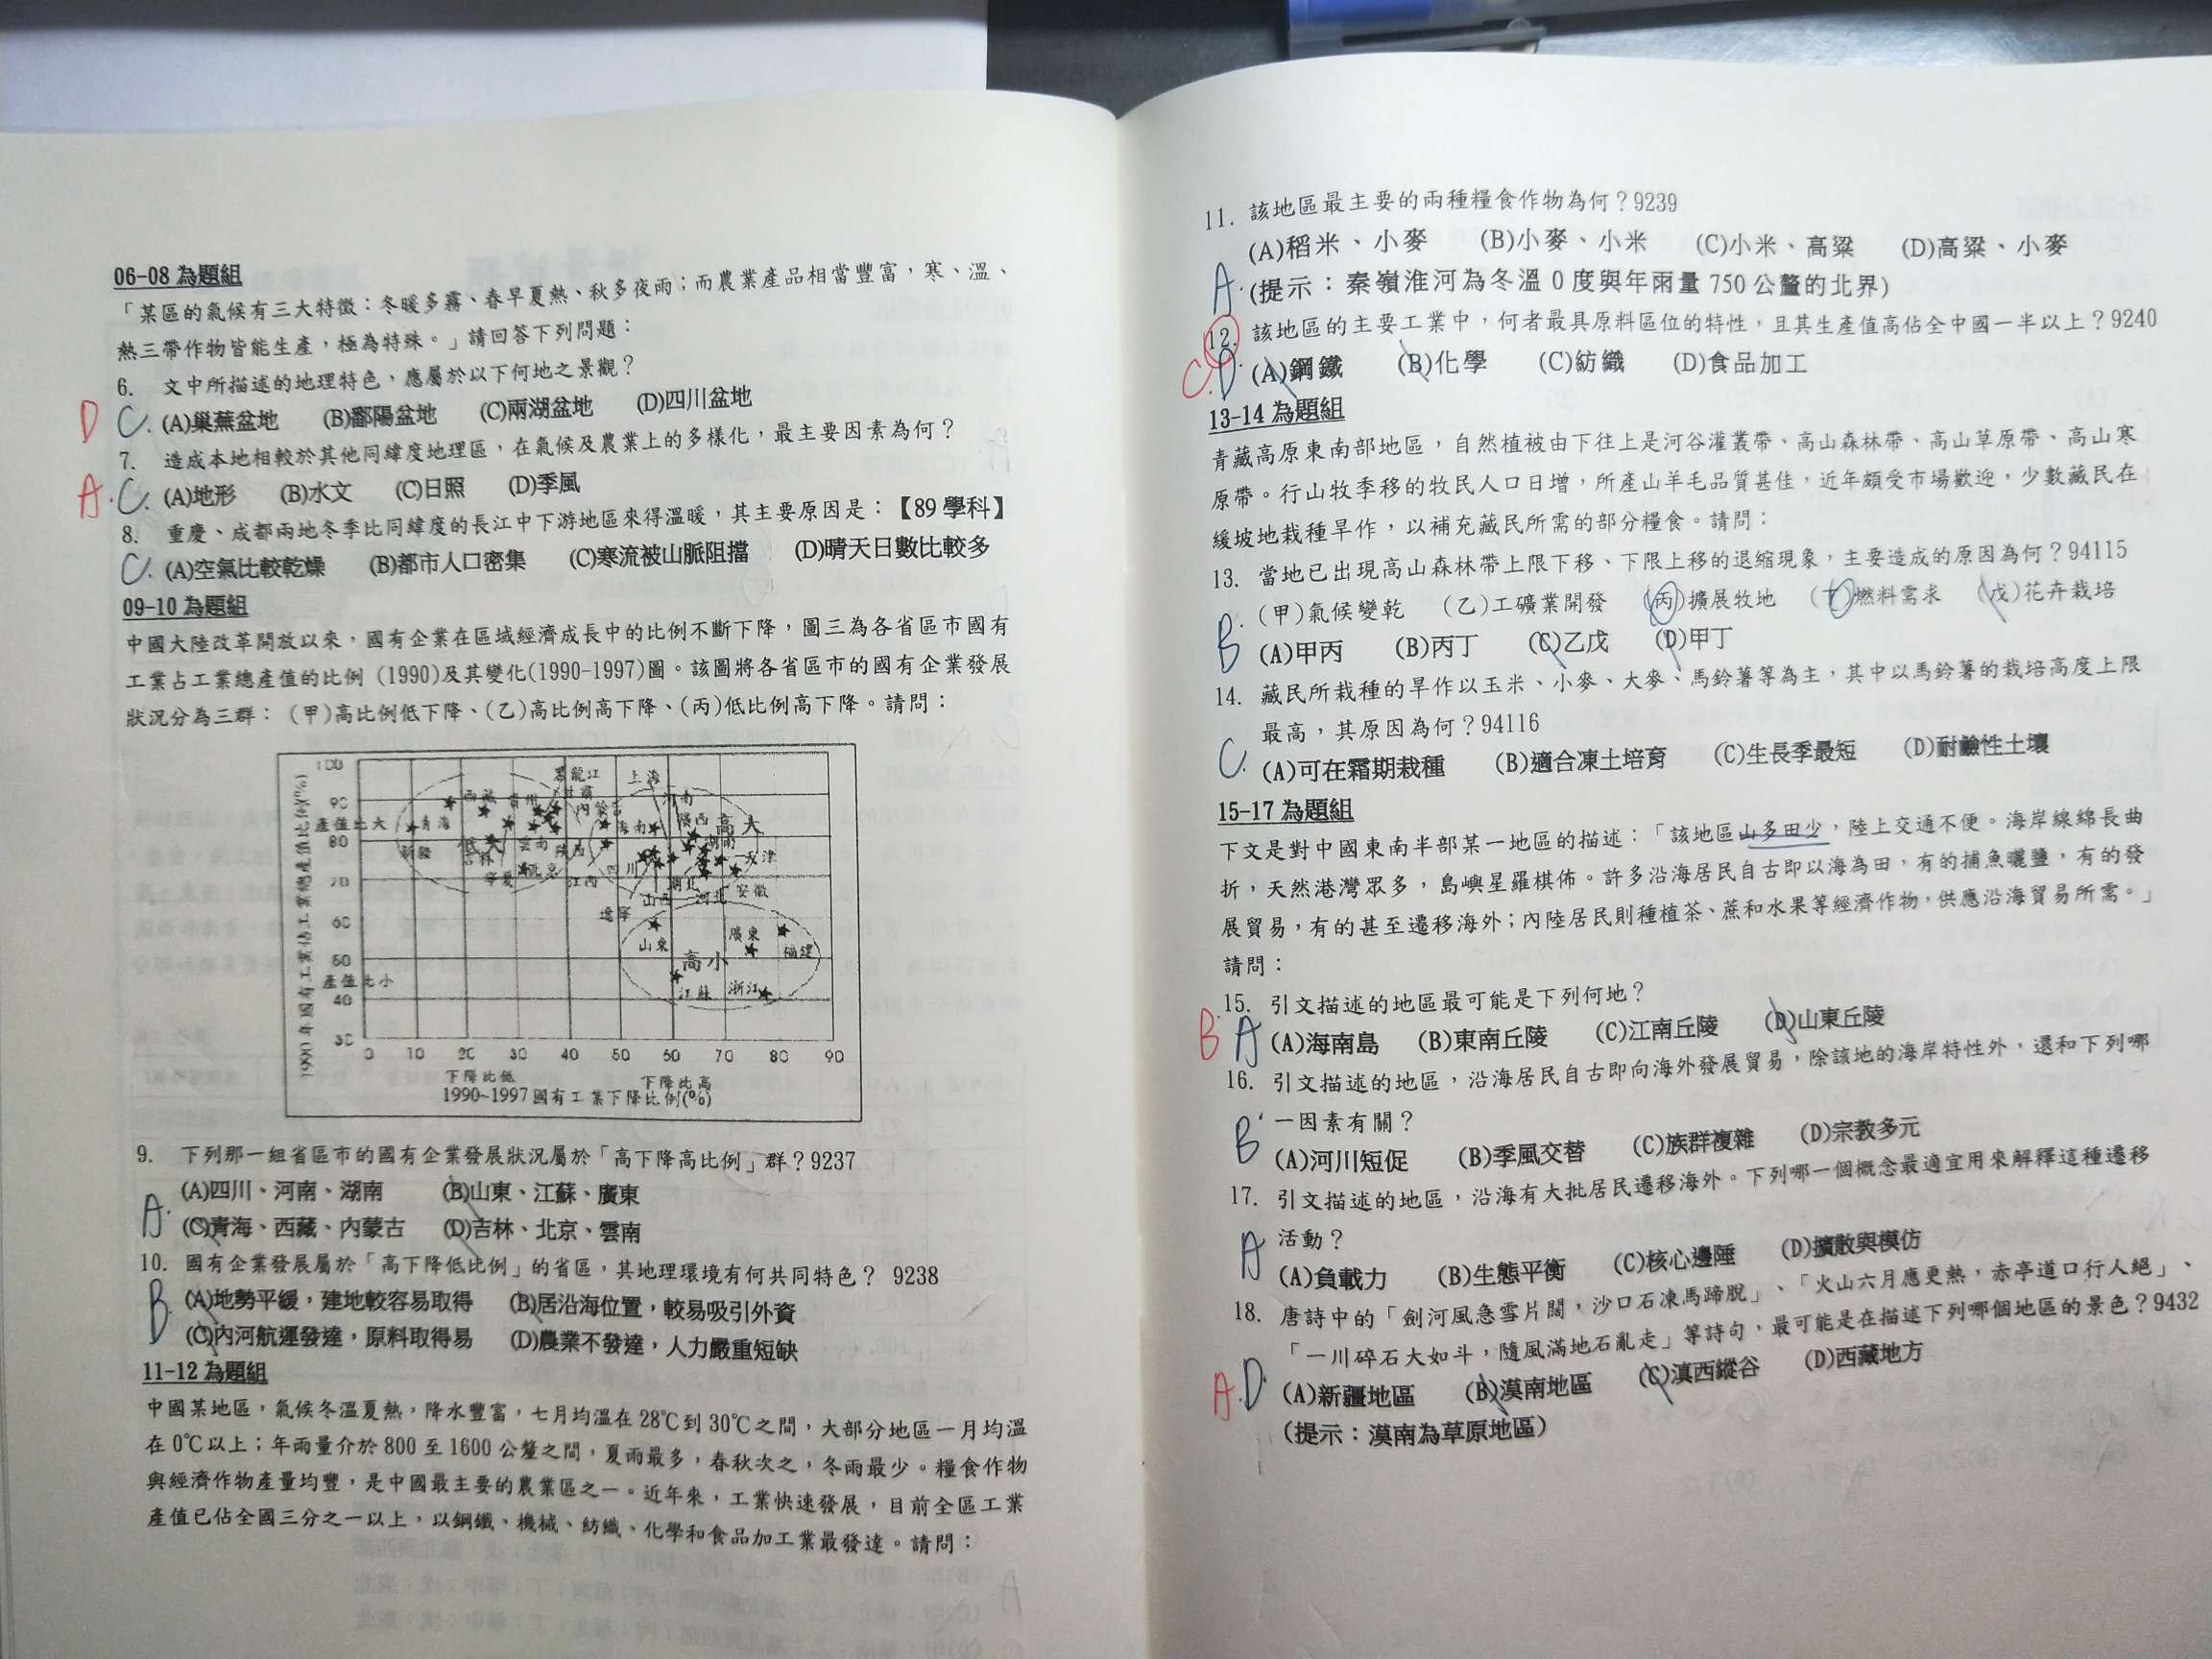 06-08 為題組
「某區的氣候有三大特徵：冬暖多霧、春早夏熱、秋多夜雨；而農業產品相當豐富，寒、溫、
熱三帶作物皆能生產，極為特殊。」請回答下列問題：
6. 文中所描述的地理特色，應屬於以下何地之景觀？
D C. (A)巢蕪盆地 (B)鄱陽盆地 (C)兩湖盆地 (D)四川盆地
7. 造成本地相較於其他同緯度地理區，在氣候及農業上的多樣化，最主要因素為何？
A. C. (A)地形 (B)水文 (C)日照 (D)季風
8. 重慶、成都兩地冬季比同緯度的長江中下游地區來得溫暖，其主要原因是：【89 學科】
C. (A)空氣比較乾燥 (B)都市人口密集 (C)寒流被山脈阻擋 (D)晴天日數比較多
09-10 為題組
中國大陸改革開放以來，國有企業在區域經濟成長中的比例不斷下降，圖三為各省區市國有
工業占工業總產值的比例 (1990)及其變化(1990-1997)圖。該圖將各省區市的國有企業發展
狀況分為三群： (甲)高比例低下降、(乙)高比例高下降、(丙)低比例高下降。請問：
1990年國有工業佔工業總產值比例(%)
100
90
產值比大
80
70
60
50
產值比小
40
30
黑龍江 上海
西藏 貴州 甘肅 河南
青海 內蒙古 海南 陝西 高大
新疆 低大 雲南 湖南
吉林 天津
寧夏 北京 江西 四川 湖北 安徽
山西 河北
遼寧
山東 廣東 福建
高小
江蘇 浙江
0 10 20 30 40 50 60 70 80 90
下降比低 下降比高
1990~1997國有工業下降比例(%)
9. 下列那一組省區市的國有企業發展狀況屬於「高下降高比例」群？9237
(A)四川、河南、湖南 (B)山東、江蘇、廣東
A. (C)青海、西藏、內蒙古 (D)吉林、北京、雲南
10. 國有企業發展屬於「高下降低比例」的省區，其地理環境有何共同特色？ 9238
B. (A)地勢平緩，建地較容易取得 (B)居沿海位置，較易吸引外資
(C)內河航運發達，原料取得易 (D)農業不發達，人力嚴重短缺
11-12 為題組
中國某地區，氣候冬溫夏熱，降水豐富，七月均溫在 28℃到 30℃之間，大部分地區一月均溫
在 0℃以上；年雨量介於 800 至 1600 公釐之間，夏雨最多，春秋次之，冬雨最少。糧食作物
與經濟作物產量均豐，是中國最主要的農業區之一。近年來，工業快速發展，目前全區工業
產值已佔全國三分之一以上，以鋼鐵、機械、紡織、化學和食品加工業最發達。請問：
11. 該地區最主要的兩種糧食作物為何？9239
(A)稻米、小麥 (B)小麥、小米 (C)小米、高粱 (D)高粱、小麥
A. (提示：秦嶺淮河為冬溫 0 度與年雨量 750 公釐的北界)
12. 該地區的主要工業中，何者最具原料區位的特性，且其生產值高佔全中國一半以上？9240
C. D. (A)鋼鐵 (B)化學 (C)紡織 (D)食品加工
13-14 為題組
青藏高原東南部地區，自然植被由下往上是河谷灌叢帶、高山森林帶、高山草原帶、高山寒
原帶。行山牧季移的牧民人口日增，所產山羊毛品質甚佳，近年頗受市場歡迎，少數藏民在
緩坡地栽種旱作，以補充藏民所需的部分糧食。請問：
13. 當地已出現高山森林帶上限下移、下限上移的退縮現象，主要造成的原因為何？94115
(甲)氣候變乾 (乙)工礦業開發 (丙)擴展牧地 (丁)燃料需求 (戊)花卉栽培
B. (A)甲丙 (B)丙丁 (C)乙戊 (D)甲丁
14. 藏民所栽種的旱作以玉米、小麥、大麥、馬鈴薯等為主，其中以馬鈴薯的栽培高度上限
最高，其原因為何？94116
C. (A)可在霜期栽種 (B)適合凍土培育 (C)生長季最短 (D)耐鹼性土壤
15-17 為題組
下文是對中國東南半部某一地區的描述：「該地區山多田少，陸上交通不便。海岸線綿長曲
折，天然港灣眾多，島嶼星羅棋佈。許多沿海居民自古即以海為田，有的捕魚曬鹽，有的發
展貿易，有的甚至遷移海外；內陸居民則種植茶、蔗和水果等經濟作物，供應沿海貿易所需。」
請問：
15. 引文描述的地區最可能是下列何地？
B. A (A)海南島 (B)東南丘陵 (C)江南丘陵 (D)山東丘陵
16. 引文描述的地區，沿海居民自古即向海外發展貿易，除該地的海岸特性外，還和下列哪
一因素有關？
B (A)河川短促 (B)季風交替 (C)族群複雜 (D)宗教多元
17. 引文描述的地區，沿海有大批居民遷移海外。下列哪一個概念最適宜用來解釋這種遷移
活動？
A (A)負載力 (B)生態平衡 (C)核心邊陲 (D)擴散與模仿
18. 唐詩中的「劍河風急雪片闊，沙口石凍馬蹄脫」、「火山六月應更熱，赤亭道口行人絕」、
「一川碎石大如斗，隨風滿地石亂走」等詩句，最可能是在描述下列哪個地區的景色？9432
A. D. (A)新疆地區 (B)漠南地區 (C)滇西縱谷 (D)西藏地方
(提示：漠南為草原地區)